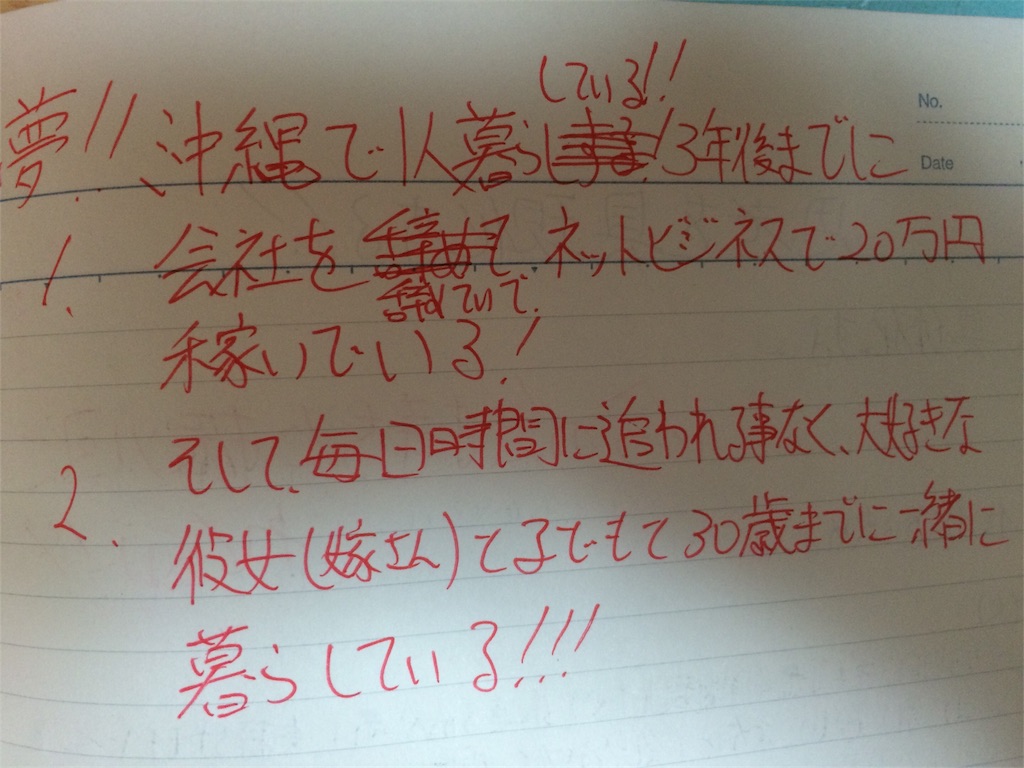 している!!
No.
夢!! 沖縄で1人暮らし! 3年後までに
Date
1. 会社を ネットビジネスで20万円
辞めていて、
稼いでいる!
そして、毎日時間に追われる事なく、大好きな
2. 彼女(嫁さん)と子どもと30歳までに一緒に
暮らしている!!!